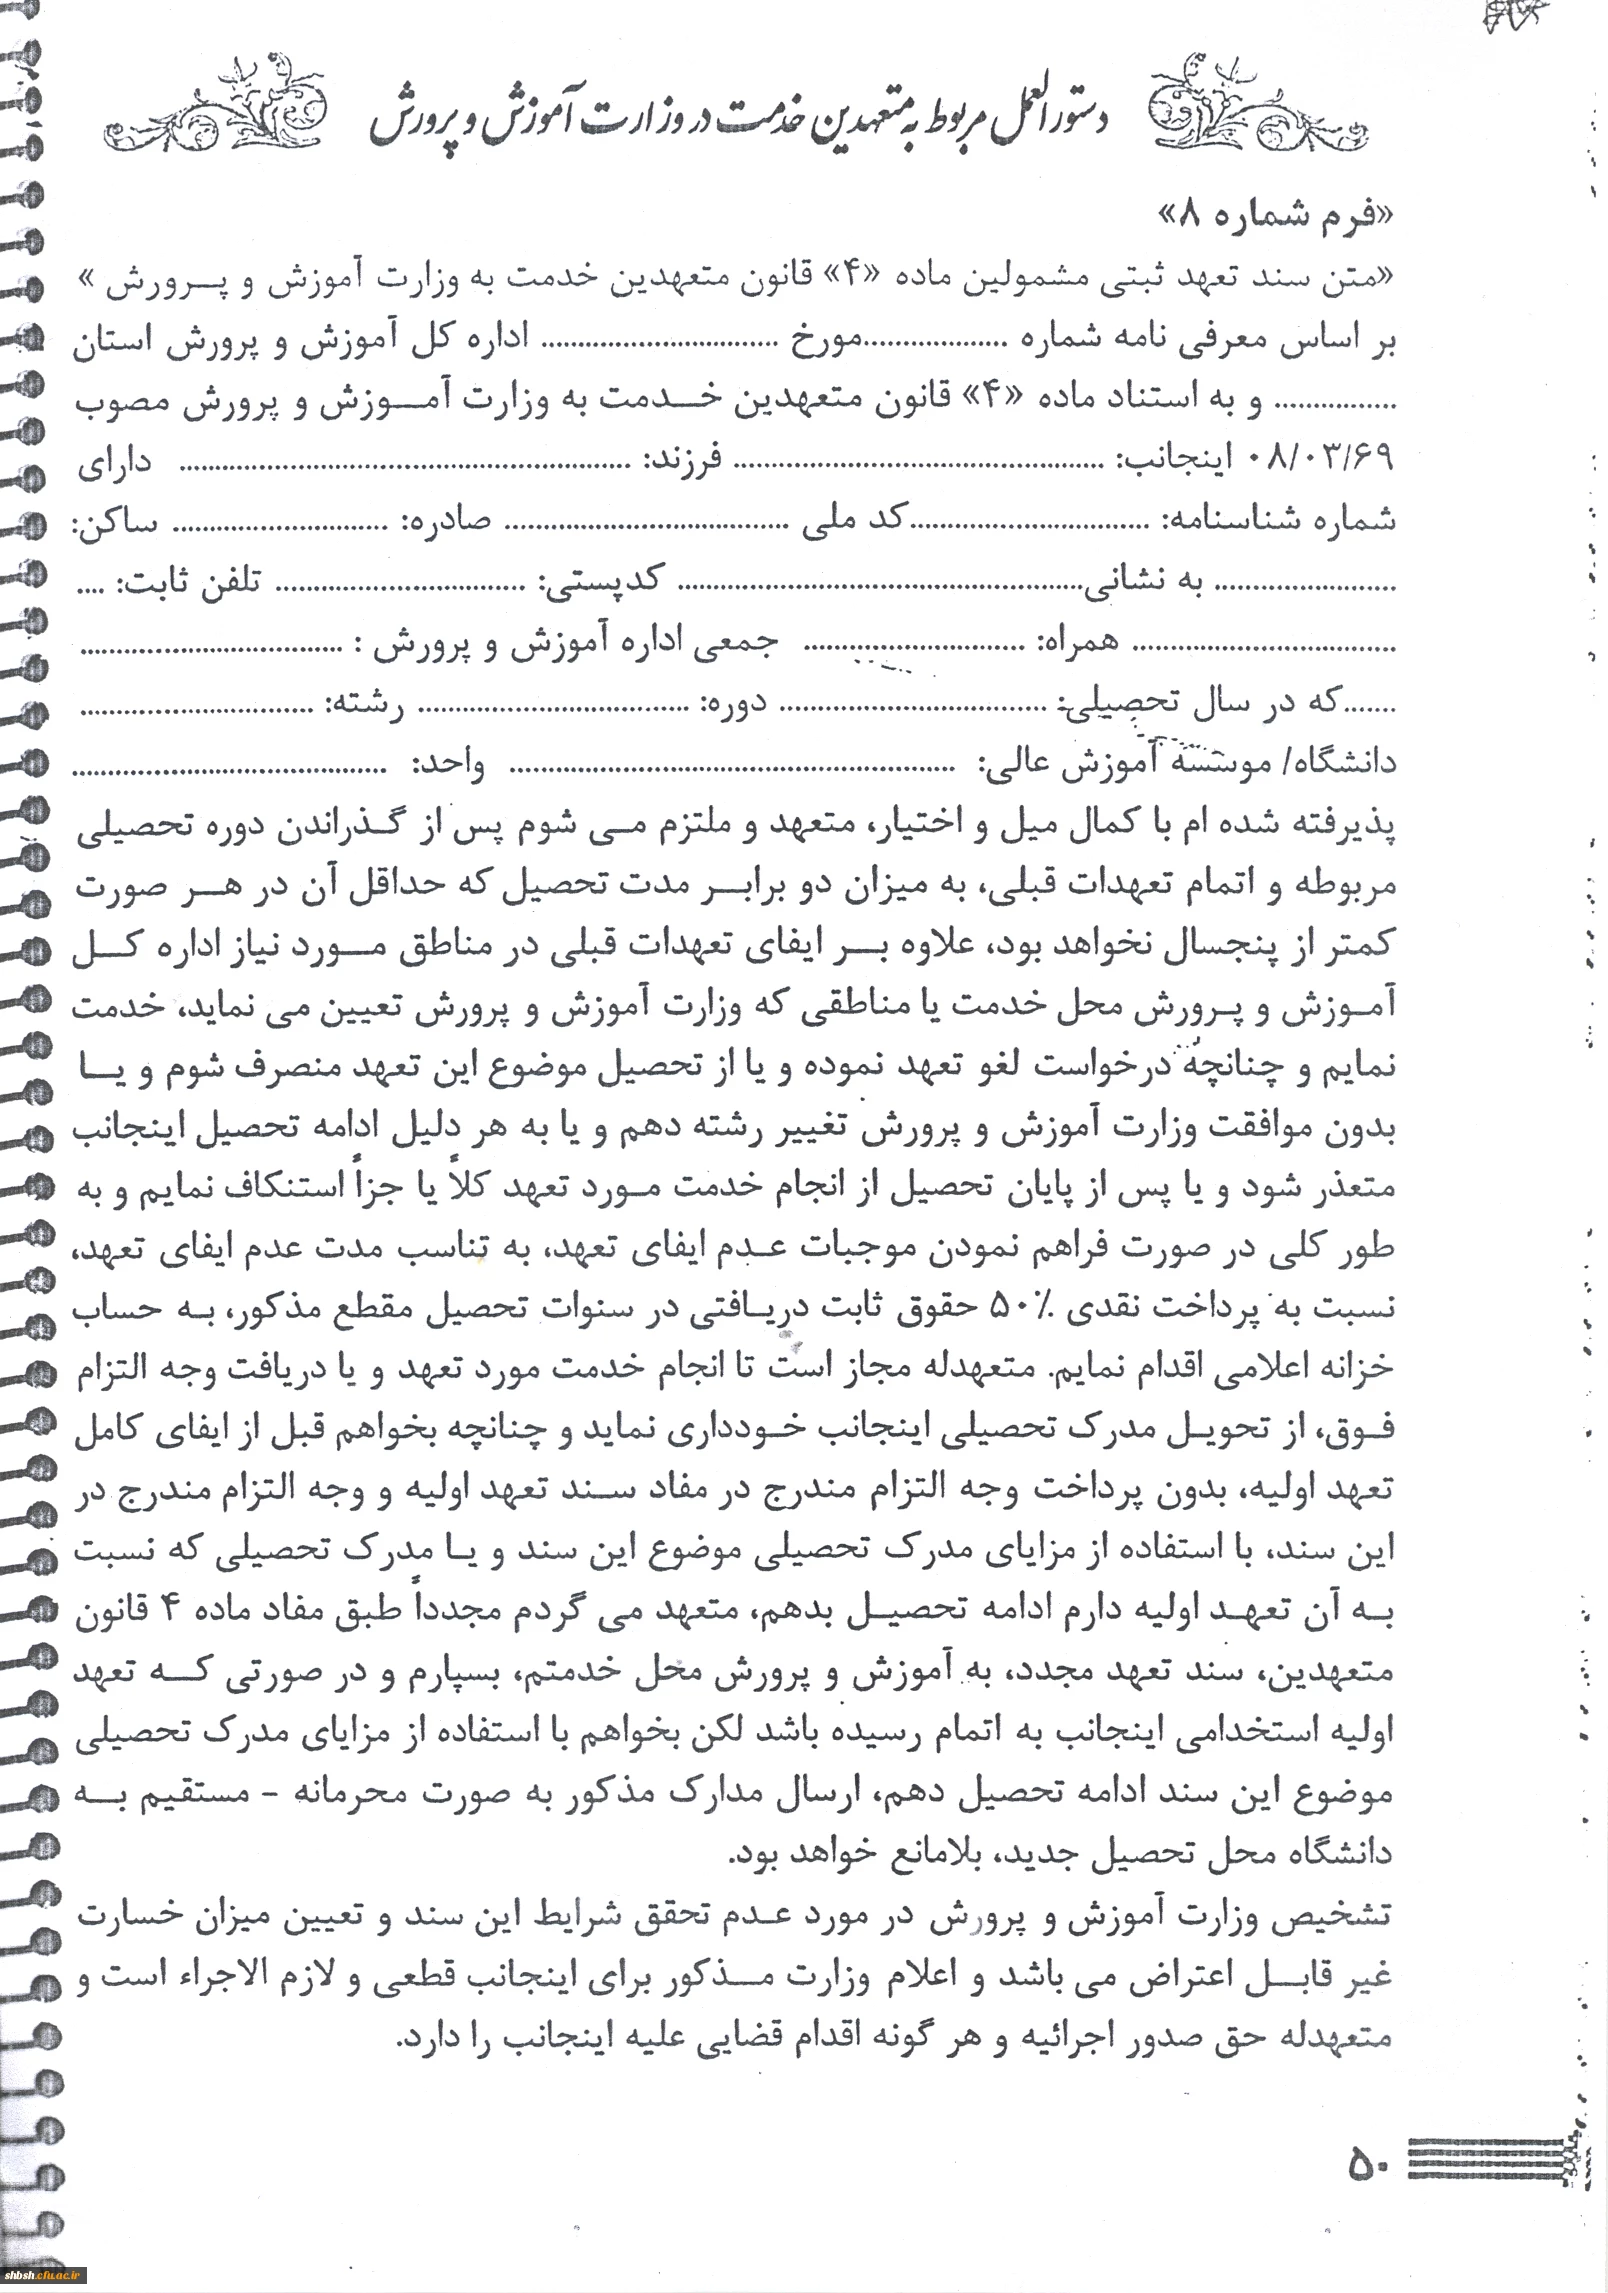 دستورالعمل مربوط به متعهدین خدمت در وزارت آموزش و پرورش
«فرم شماره ۸»
«متن سند تعهد ثبتی مشمولین ماده «۴» قانون متعهدین خدمت به وزارت آموزش و پرورش »
بر اساس معرفی نامه شماره ...................مورخ ............................... اداره کل آموزش و پرورش استان
................ و به استناد ماده «۴» قانون متعهدین خدمت به وزارت آموزش و پرورش مصوب
۰۸/۰۳/۶۹ اینجانب: ................................................ فرزند: ........................................................... دارای
شماره شناسنامه: ...............................کد ملی ..................................... صادره: ............................ ساکن:
........................ به نشانی..................................................... کدپستی: ................................. تلفن ثابت: ....
................................... همراه: ............................. جمعی اداره آموزش و پرورش : ...................................
.......که در سال تحصیلی: ................................... دوره: .................................... رشته: ...............................
دانشگاه/ موسسه آموزش عالی: .......................................................... واحد: .........................................
پذیرفته شده ام با کمال میل و اختیار، متعهد و ملتزم می شوم پس از گذراندن دوره تحصیلی
مربوطه و اتمام تعهدات قبلی، به میزان دو برابر مدت تحصیل که حداقل آن در هر صورت
کمتر از پنجسال نخواهد بود، علاوه بر ایفای تعهدات قبلی در مناطق مورد نیاز اداره کل
آموزش و پرورش محل خدمت یا مناطقی که وزارت آموزش و پرورش تعیین می نماید، خدمت
نمایم و چنانچه درخواست لغو تعهد نموده و یا از تحصیل موضوع این تعهد منصرف شوم و یا
بدون موافقت وزارت آموزش و پرورش تغییر رشته دهم و یا به هر دلیل ادامه تحصیل اینجانب
متعذر شود و یا پس از پایان تحصیل از انجام خدمت مورد تعهد کلاً یا جزاً استنکاف نمایم و به
طور کلی در صورت فراهم نمودن موجبات عدم ایفای تعهد، به تناسب مدت عدم ایفای تعهد،
نسبت به پرداخت نقدی ۵۰٪ حقوق ثابت دریافتی در سنوات تحصیل مقطع مذکور، به حساب
خزانه اعلامی اقدام نمایم. متعهدله مجاز است تا انجام خدمت مورد تعهد و یا دریافت وجه التزام
فوق، از تحویل مدرک تحصیلی اینجانب خودداری نماید و چنانچه بخواهم قبل از ایفای کامل
تعهد اولیه، بدون پرداخت وجه التزام مندرج در مفاد سند تعهد اولیه و وجه التزام مندرج در
این سند، با استفاده از مزایای مدرک تحصیلی موضوع این سند و یا مدرک تحصیلی که نسبت
به آن تعهد اولیه دارم ادامه تحصیل بدهم، متعهد می گردم مجدداً طبق مفاد ماده ۴ قانون
متعهدین، سند تعهد مجدد، به آموزش و پرورش محل خدمتم، بسپارم و در صورتی که تعهد
اولیه استخدامی اینجانب به اتمام رسیده باشد لکن بخواهم با استفاده از مزایای مدرک تحصیلی
موضوع این سند ادامه تحصیل دهم، ارسال مدارک مذکور به صورت محرمانه - مستقیم به
دانشگاه محل تحصیل جدید، بلامانع خواهد بود.
تشخیص وزارت آموزش و پرورش در مورد عدم تحقق شرایط این سند و تعیین میزان خسارت
غیر قابل اعتراض می باشد و اعلام وزارت مذکور برای اینجانب قطعی و لازم الاجراء است و
متعهدله حق صدور اجرائیه و هر گونه اقدام قضایی علیه اینجانب را دارد.
۵۰
shbsh.cfu.ac.ir